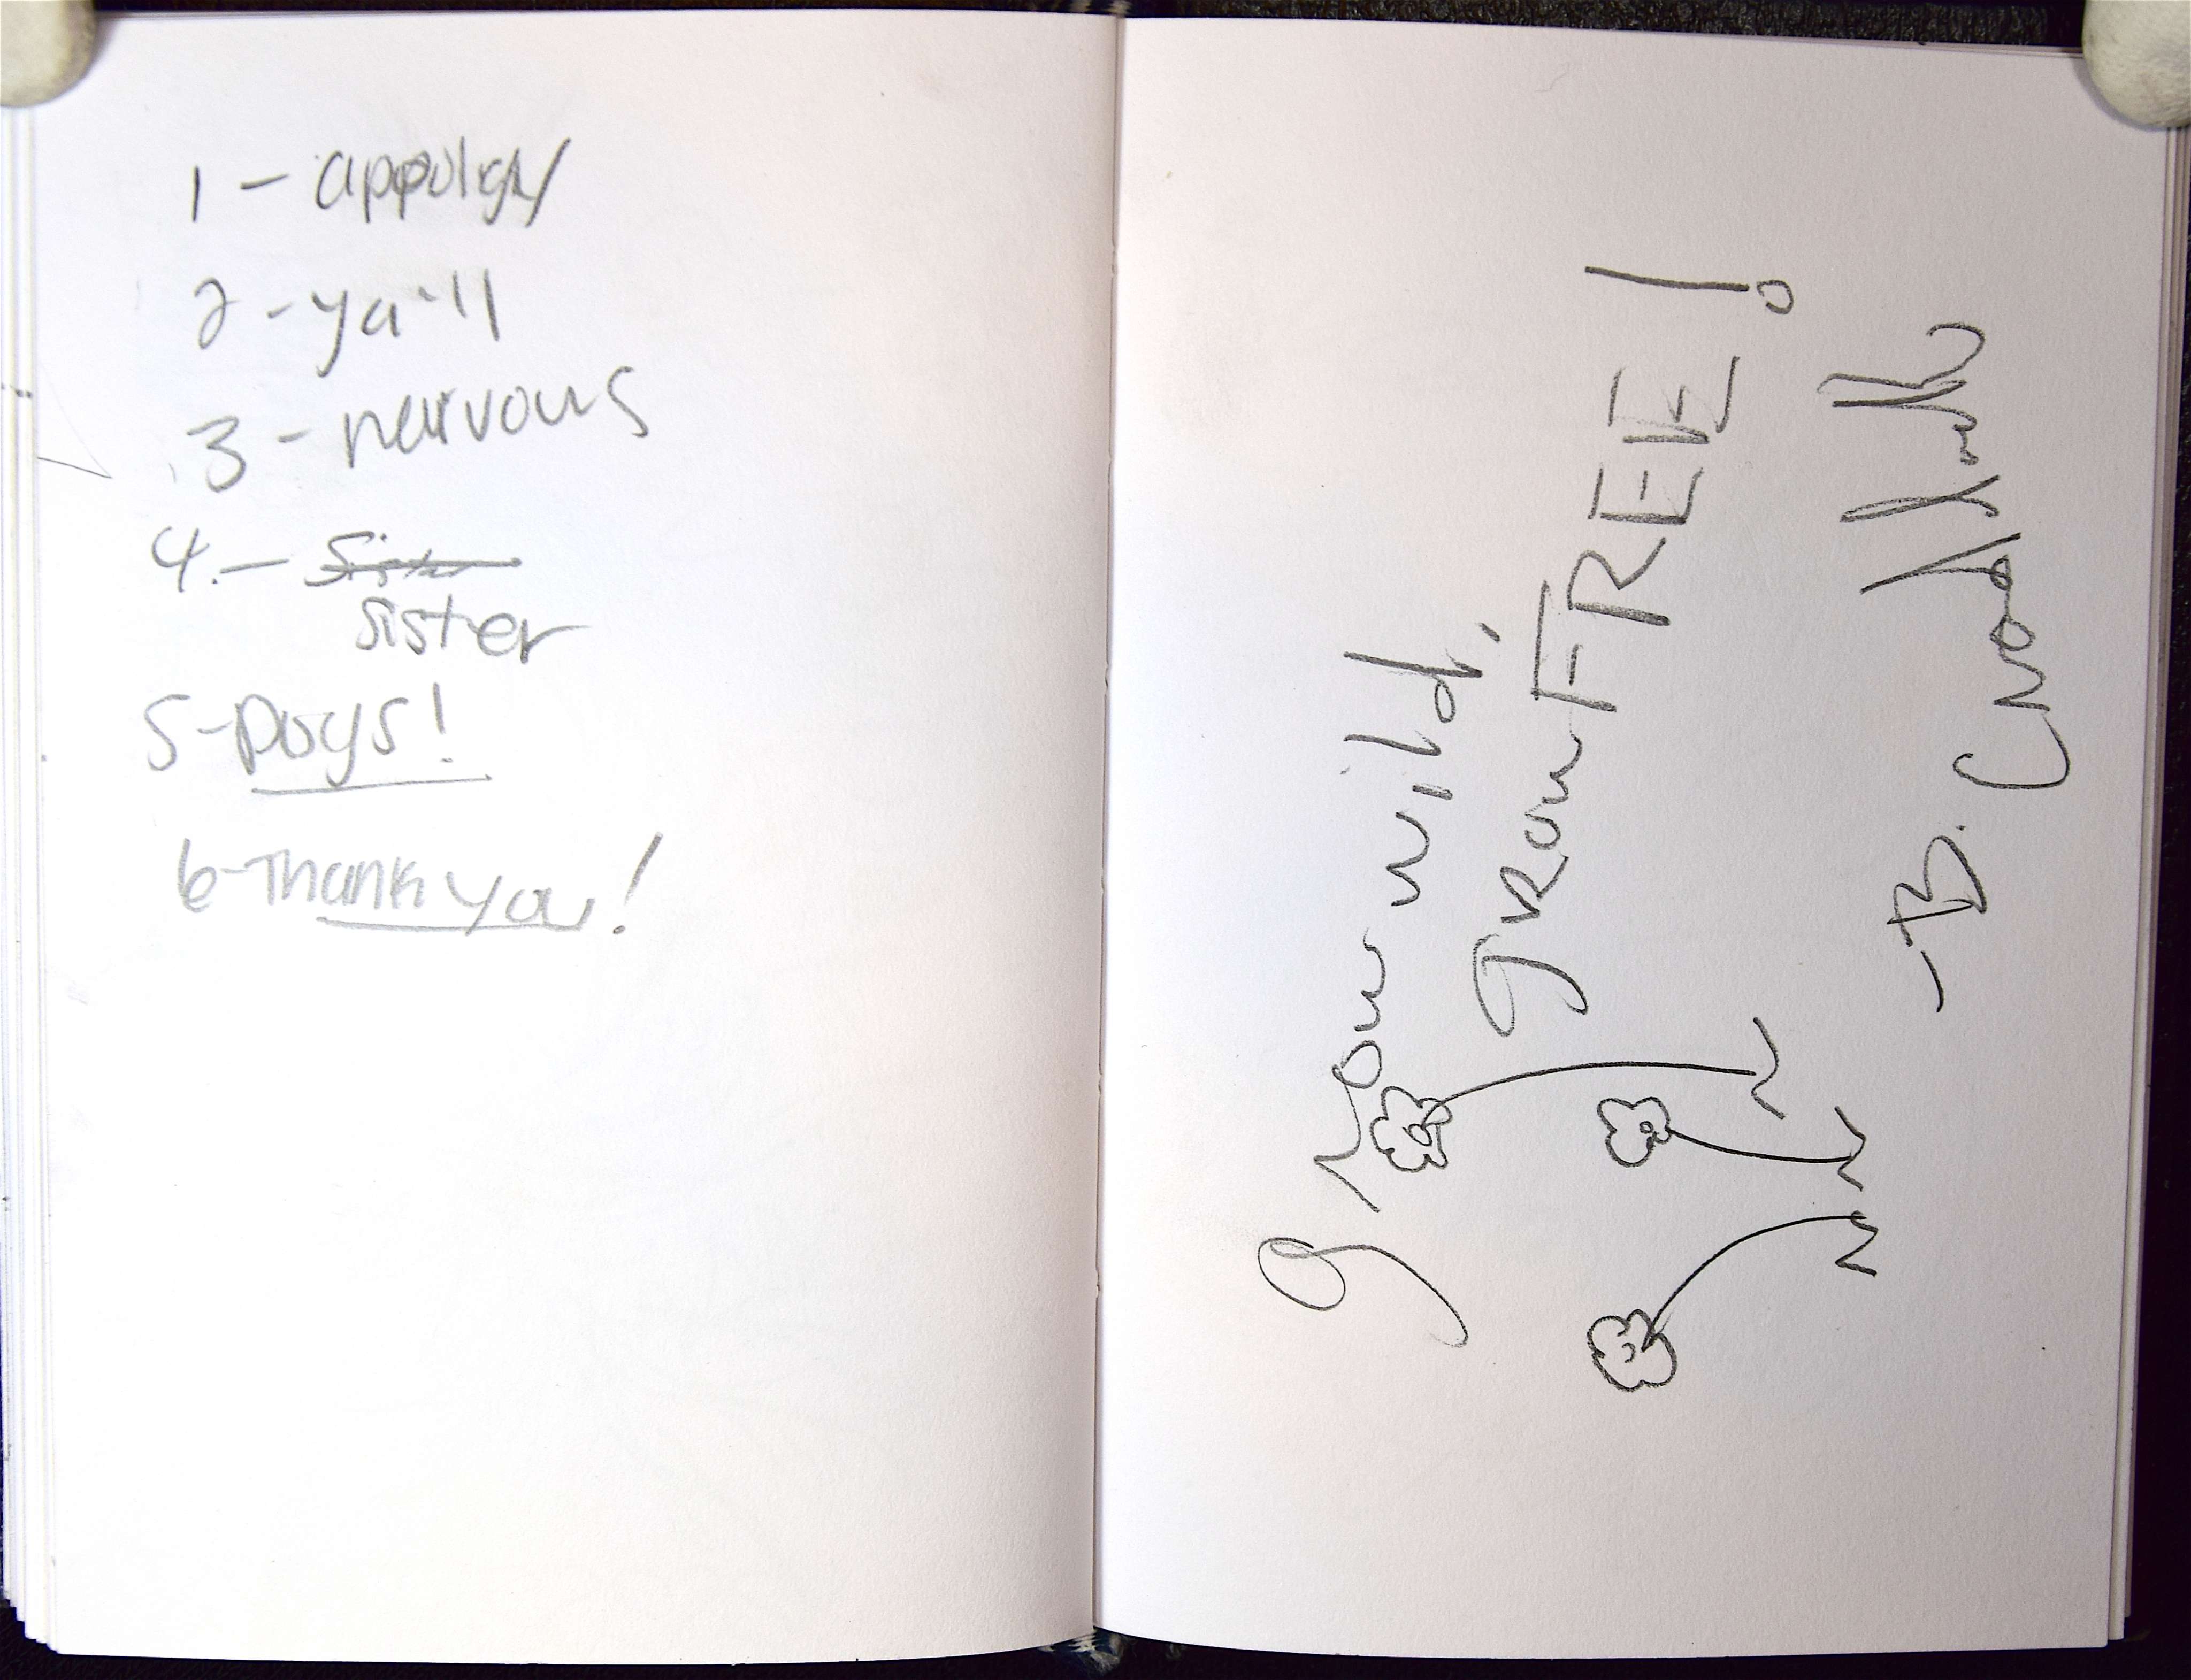 1 - appolgy
2 - ya'll
3 - nervous
4. - Sister
sister
5 - Dogs!
6 - Thank you!
grow wild,
grow FREE!
- B.